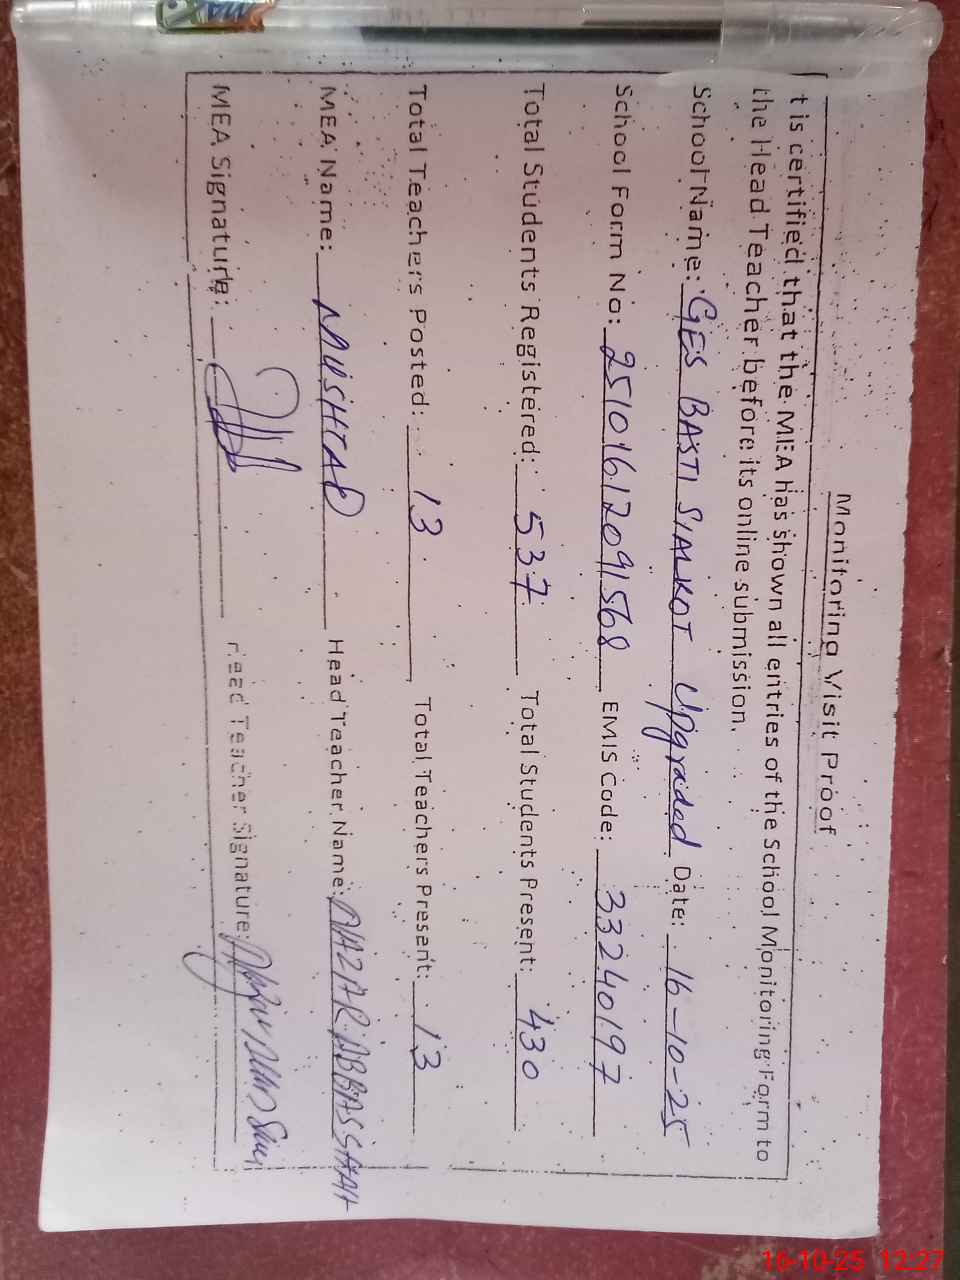 Monitoring Visit Proof
t is certified that the MEA has shown all entries of the School Monitoring Form to
the Head Teacher before its online submission.
School Name: GES BASTI SIALKOT Upgraded Date: 16-10-25
School Form No: 25101612091568 EMIS Code: 33240197
Total Students Registered: 537 Total Students Present: 430
Total Teachers Posted: 13 Total Teachers Present: 13
MEA Name: MUSHTAQ Head Teacher Name: NAZAR ABBAS SHAH
MEA Signature: Head Teacher Signature:
16-10-25 12:27